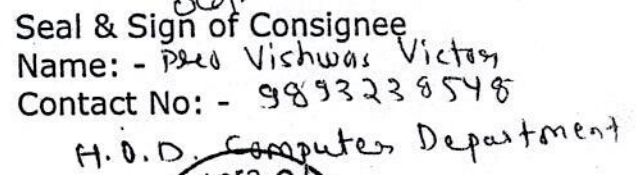 Seal & Sign of Consignee
Name: - Prof Vishwas Victor
Contact No: - 9893238548
H.O.D. Computer Department